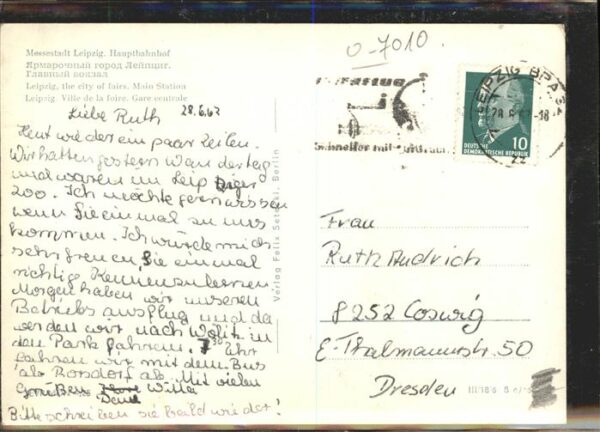 Messestadt Leipzig. Hauptbahnhof
Ярмарочный город Лейпциг.
Главный вокзал
Leipzig, the city of fairs, Main Station
Leipzig Ville de la foire. Gare centrale
28.6.67
Liebe Ruth
Heut wieder ein paar Zeilen.
Wir hatten gestern Wandertag
und waren im Leipziger
Zoo. Ich möchte gern wissen
wenn Sie einmal zu uns
kommen. Ich würde mich
sehr freuen Sie einmal
richtige Kennenzulernen
Morgen haben wir unseren
Betriebsausflug und da
werden wir nach Wölitz in
den Park fahren. 7 30 Uhr
fahren wir mit dem Bus
ab. Mit vielen
Grüßen Willi
Bitte schreiben sie bald wieder!
Verlag Felix Setecki, Berlin
0-7010
LEIPZIG BPA
-18
Schneller mit Luftpost
DEUTSCHE
DEMOKRATISCHE REPUBLIK
10
Frau
Ruth Audrich
8252 Coswig
E.-Thälmannstr. 50
Dresden
III/18/6